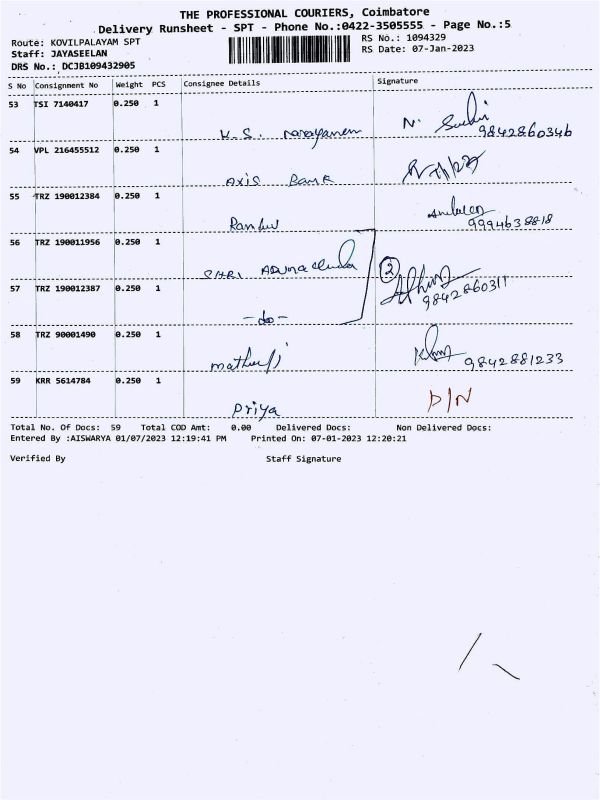 THE PROFESSIONAL COURIERS, Coimbatore
Delivery Runsheet - SPT - Phone No.:0422-3505555 - Page No.:5
Route: KOVILPALAYAM SPT
Staff: JAYASEELAN
DRS No.: DCJB109432905
RS No.: 1094329
RS Date: 07-Jan-2023
S No Consignment No Weight PCS Consignee Details Signature
53 TSI 7140417 0.250 1
K.S. Narayanan N. 9842860346
54 VPL 216455512 0.250 1
Axis Bank
55 TRZ 190012384 0.250 1
9994638818
56 TRZ 190011956 0.250 1
SHRI 2
57 TRZ 190012387 0.250 1
9842860311
-do-
58 TRZ 90001490 0.250 1
9842881233
59 KRR 5614784 0.250 1
Priya D/N
Total No. Of Docs: 59 Total COD Amt: 0.00 Delivered Docs: Non Delivered Docs:
Entered By :AISWARYA 01/07/2023 12:19:41 PM Printed On: 07-01-2023 12:20:21
Verified By Staff Signature